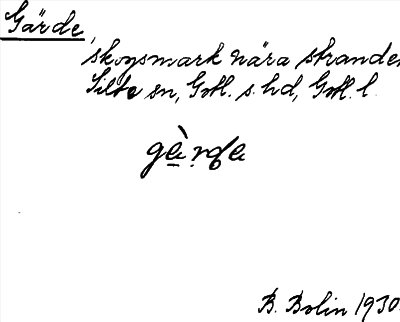 Gärde,
skogsmark nära stranden
Silte sn, Gotl. s. hd, Gotl. l.
gàrde
B. Bolin 1930.